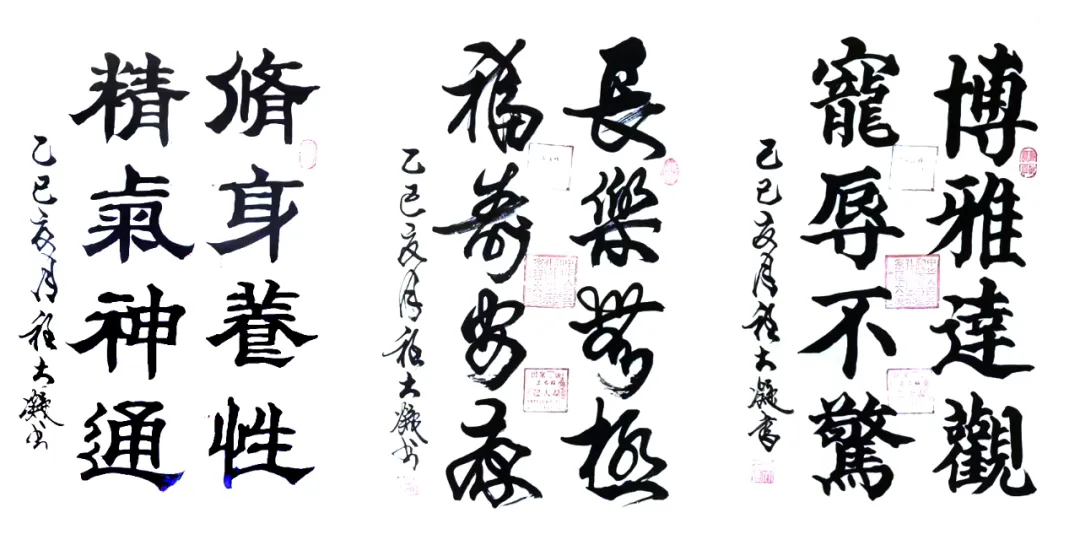 博雅達觀
寵辱不驚
乙巳亥月程大書
長樂無極
福壽安康
乙巳亥月程大书
脩身養性
精氣神通
乙巳亥月程大书